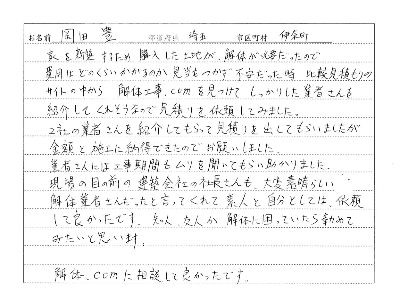 お名前 岡田 豊 都道府県 埼玉 市区町村 伊奈町
家を新築するため購入した土地が、解体が必要だったので
費用はどのくらいかかるのか見当もつかず不安だった時 比較見積もりの
サイトの中から 解体工事.comを見つけて しっかりした業者さんを
紹介してくれそうなので見積りを依頼してみました。
2社の業者さんを紹介してもらって見積りを出してもらいましたが
金額と施工に納得できたのでお願いしました。
業者さんには工事期間もムリを聞いてもらい助かりました。
現場の目の前の 建築会社の社長さんも、大変素晴らしい
解体業者さんだったと言ってくれて 素人と自分としては、依頼
して良かったです。知人、友人が 解体に困っていたら勧めて
みたいと思います。
解体.comに相談して良かったです。